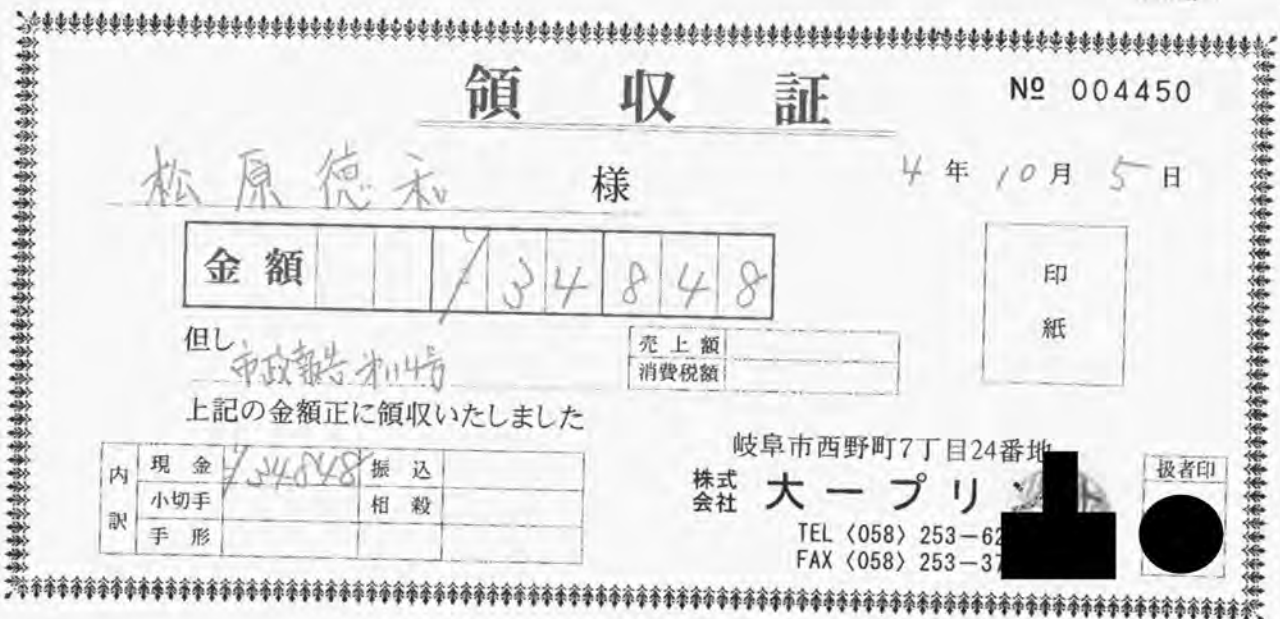 領収証
№ 004450
松原徳和 様
4年10月5日
金額 ¥34848
印紙
但し 市政報告
売上額
消費税額
上記の金額正に領収いたしました
内訳
現金 ¥34848 振込
小切手 相殺
手形
岐阜市西野町7丁目24番地
株式会社 大一プリ
TEL〈058〉253-62
FAX〈058〉253-37
扱者印